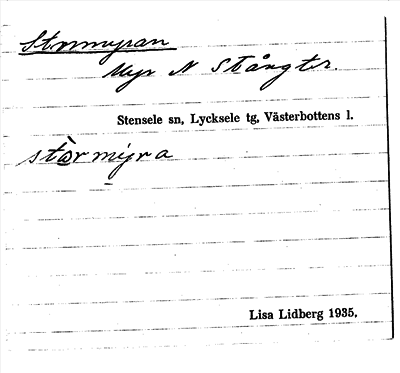 Stormyran
Myr N Stångtr.
Stensele sn, Lycksele tg, Västerbottens l.
stòrmyra
Lisa Lidberg 1935.